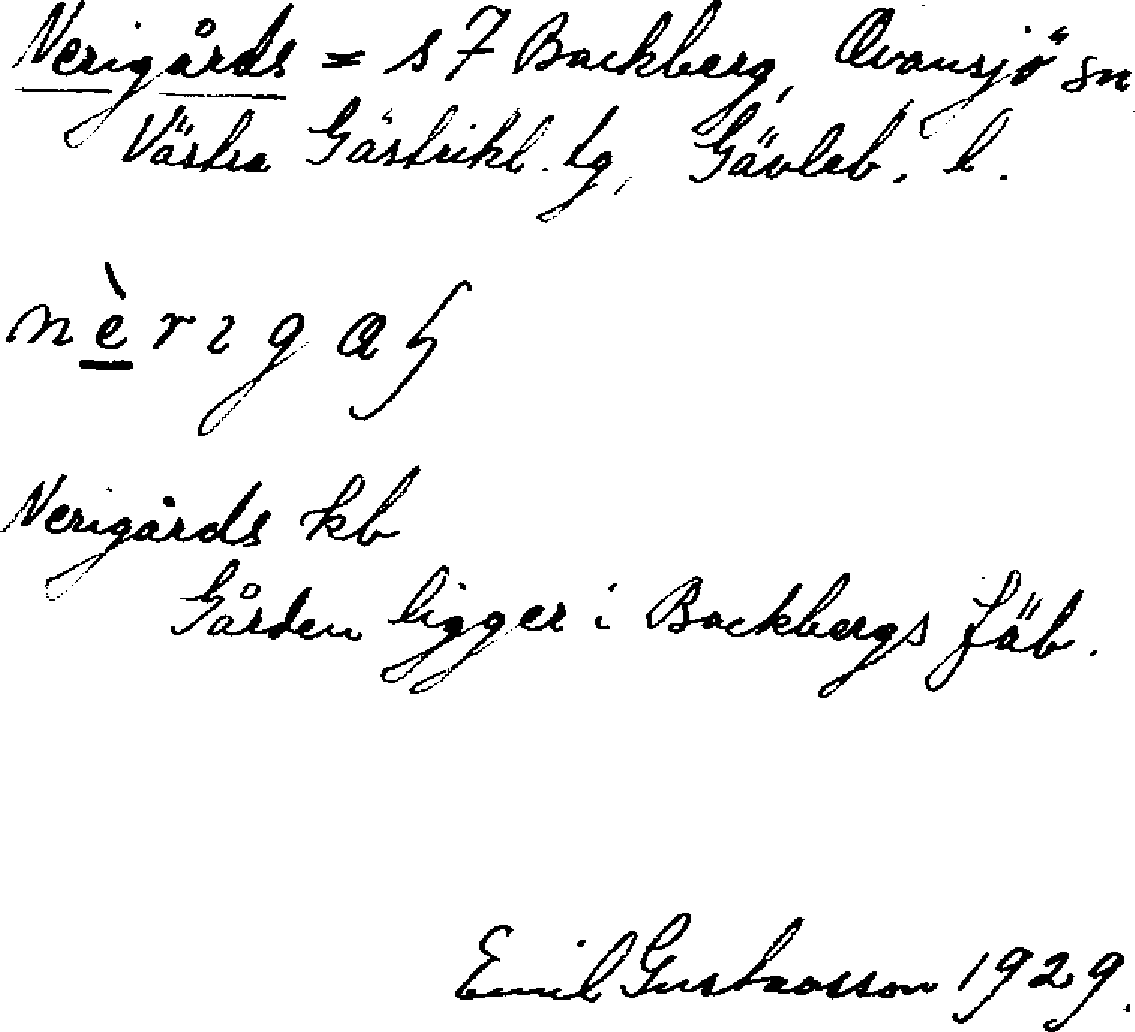 Nerigårds = s 7 Backberg, Ovansjö sn
Västra Gästrikl. tg, Gävleb. l.
nèrɩgaʂ
Nerigårds kb
Gården ligger i Backbergs fäb.
Emil Gustavsson 1929.